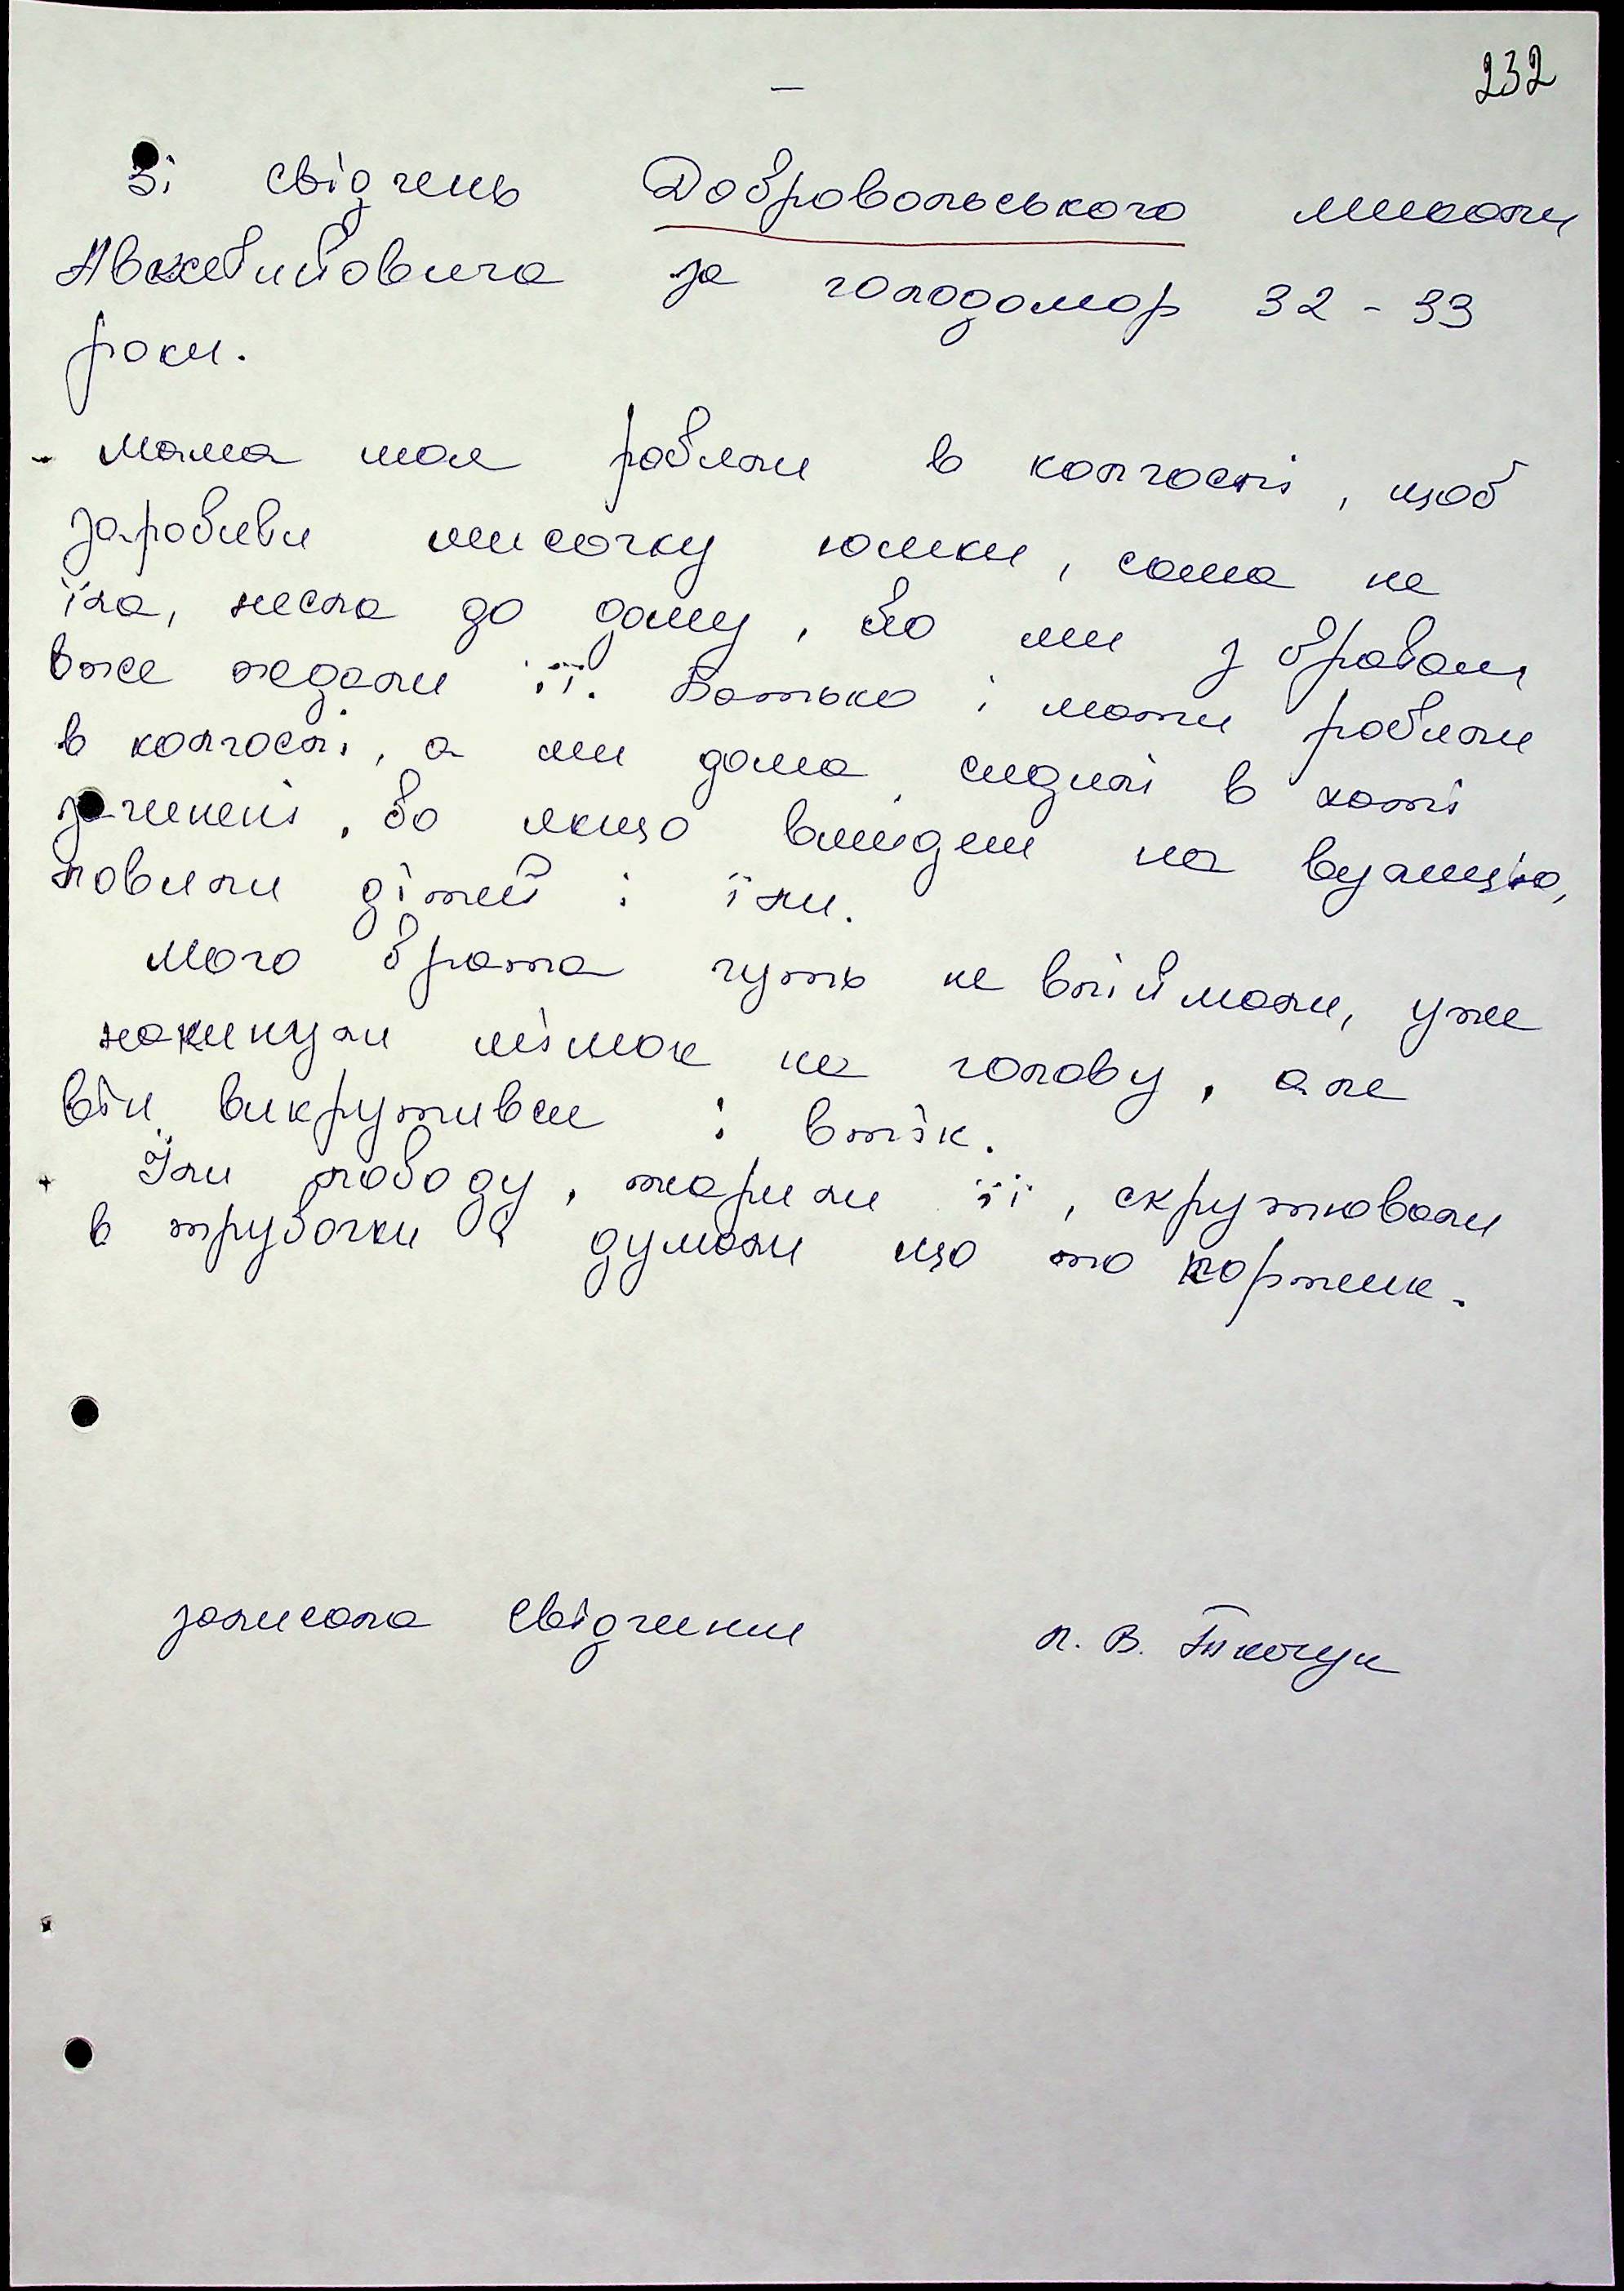 232
Зі свідчень Добровольського Миколи
Авксентийовича за голодомор 32 - 33
роки.
- Мама моя робили в колгоспі, щоб
заробиви мисочку юшки, сама не
їла, несла до дому, бо ми з братом
вже ждали її. Батько і мати робили
в колгоспі, а ми дома сиділи в хаті
зачинені, бо якщо вийдеш на вулицю,
ловили дітей і їли.
Мого брата чуть не впіймали, уже
накинули мішок на голову, але
він викрутився і втік.
Їли лободу, жарили її, скручювали
в трубочки і думали що то коржик.
записала свідчення Л. В. Ткачук